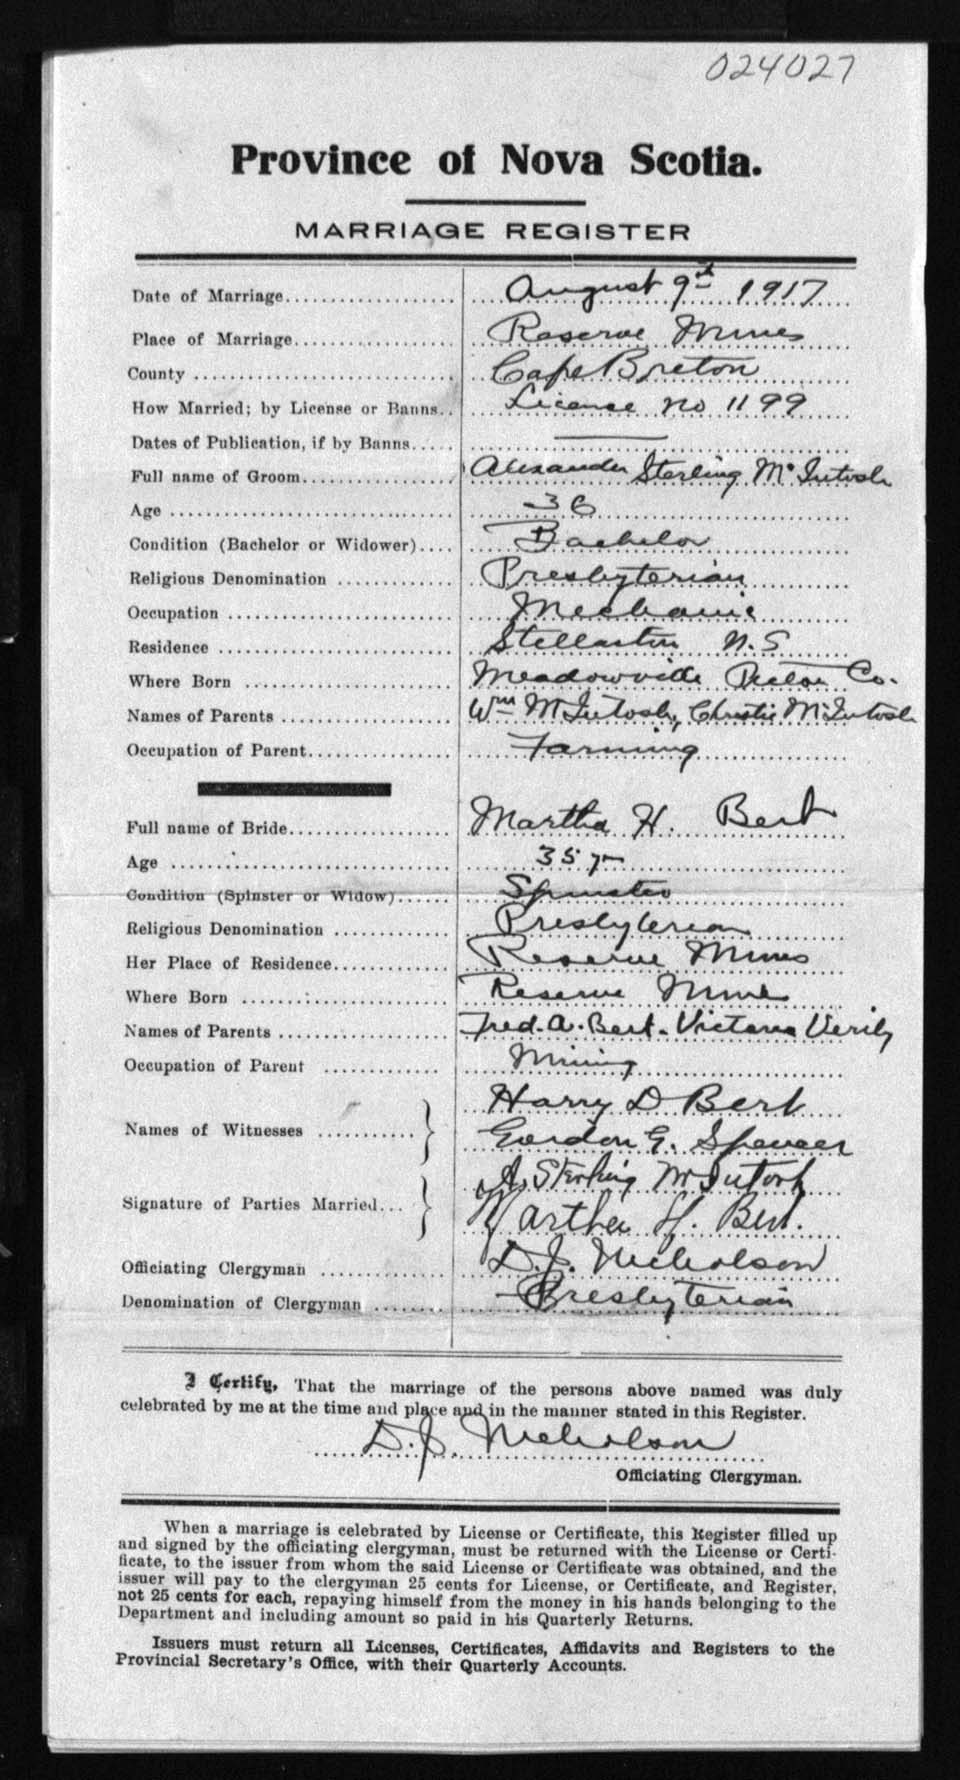 024027
Province of Nova Scotia.
MARRIAGE REGISTER
Date of Marriage.................... August 9th 1917
Place of Marriage................... Reserve Mines
County ............................. Cape Breton
How Married; by License or Banns.. License No 1199
Dates of Publication, if by Banns..... ———
Full name of Groom................. Alexander Sterling McIntosh
Age ............................. 36
Condition (Bachelor or Widower).... Bachelor
Religious Denomination ............ Presbyterian
Occupation ....................... Mechanic
Residence ........................ Stellarton N.S
Where Born ...................... Meadowville Pictou Co.
Names of Parents ................. Wm McIntosh, Christie McIntosh
Occupation of Parent............... Farming
Full name of Bride................. Martha H. Bert
Age ............................. 35 yr
Condition (Spinster or Widow)...... Spinster
Religious Denomination ............ Presbyterian
Her Place of Residence............. Reserve Mines
Where Born ...................... Reserve Mines
Names of Parents ................. Fred. A. Bert. Victoria Verily
Occupation of Parent ............. Mining
Harry D Bert
Names of Witnesses ........... } Gordon G. Spencer
A. Sterling McIntosh
Signature of Parties Married... } Martha H. Bert.
Officiating Clergyman ............. D. J. Nicholson
Denomination of Clergyman ........ Presbyterian
I Certify, That the marriage of the persons above named was duly
celebrated by me at the time and place and in the manner stated in this Register.
D. J. Nicholson
Officiating Clergyman.
When a marriage is celebrated by License or Certificate, this Register filled up
and signed by the officiating clergyman, must be returned with the License or Certi-
ficate, to the issuer from whom the said License or Certificate was obtained, and the
issuer will pay to the clergyman 25 cents for License, or Certificate, and Register,
not 25 cents for each, repaying himself from the money in his hands belonging to the
Department and including amount so paid in his Quarterly Returns.
Issuers must return all Licenses, Certificates, Affidavits and Registers to the
Provincial Secretary's Office, with their Quarterly Accounts.